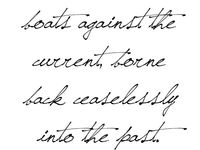 boats against the
current, borne
back ceaselessly
into the past.